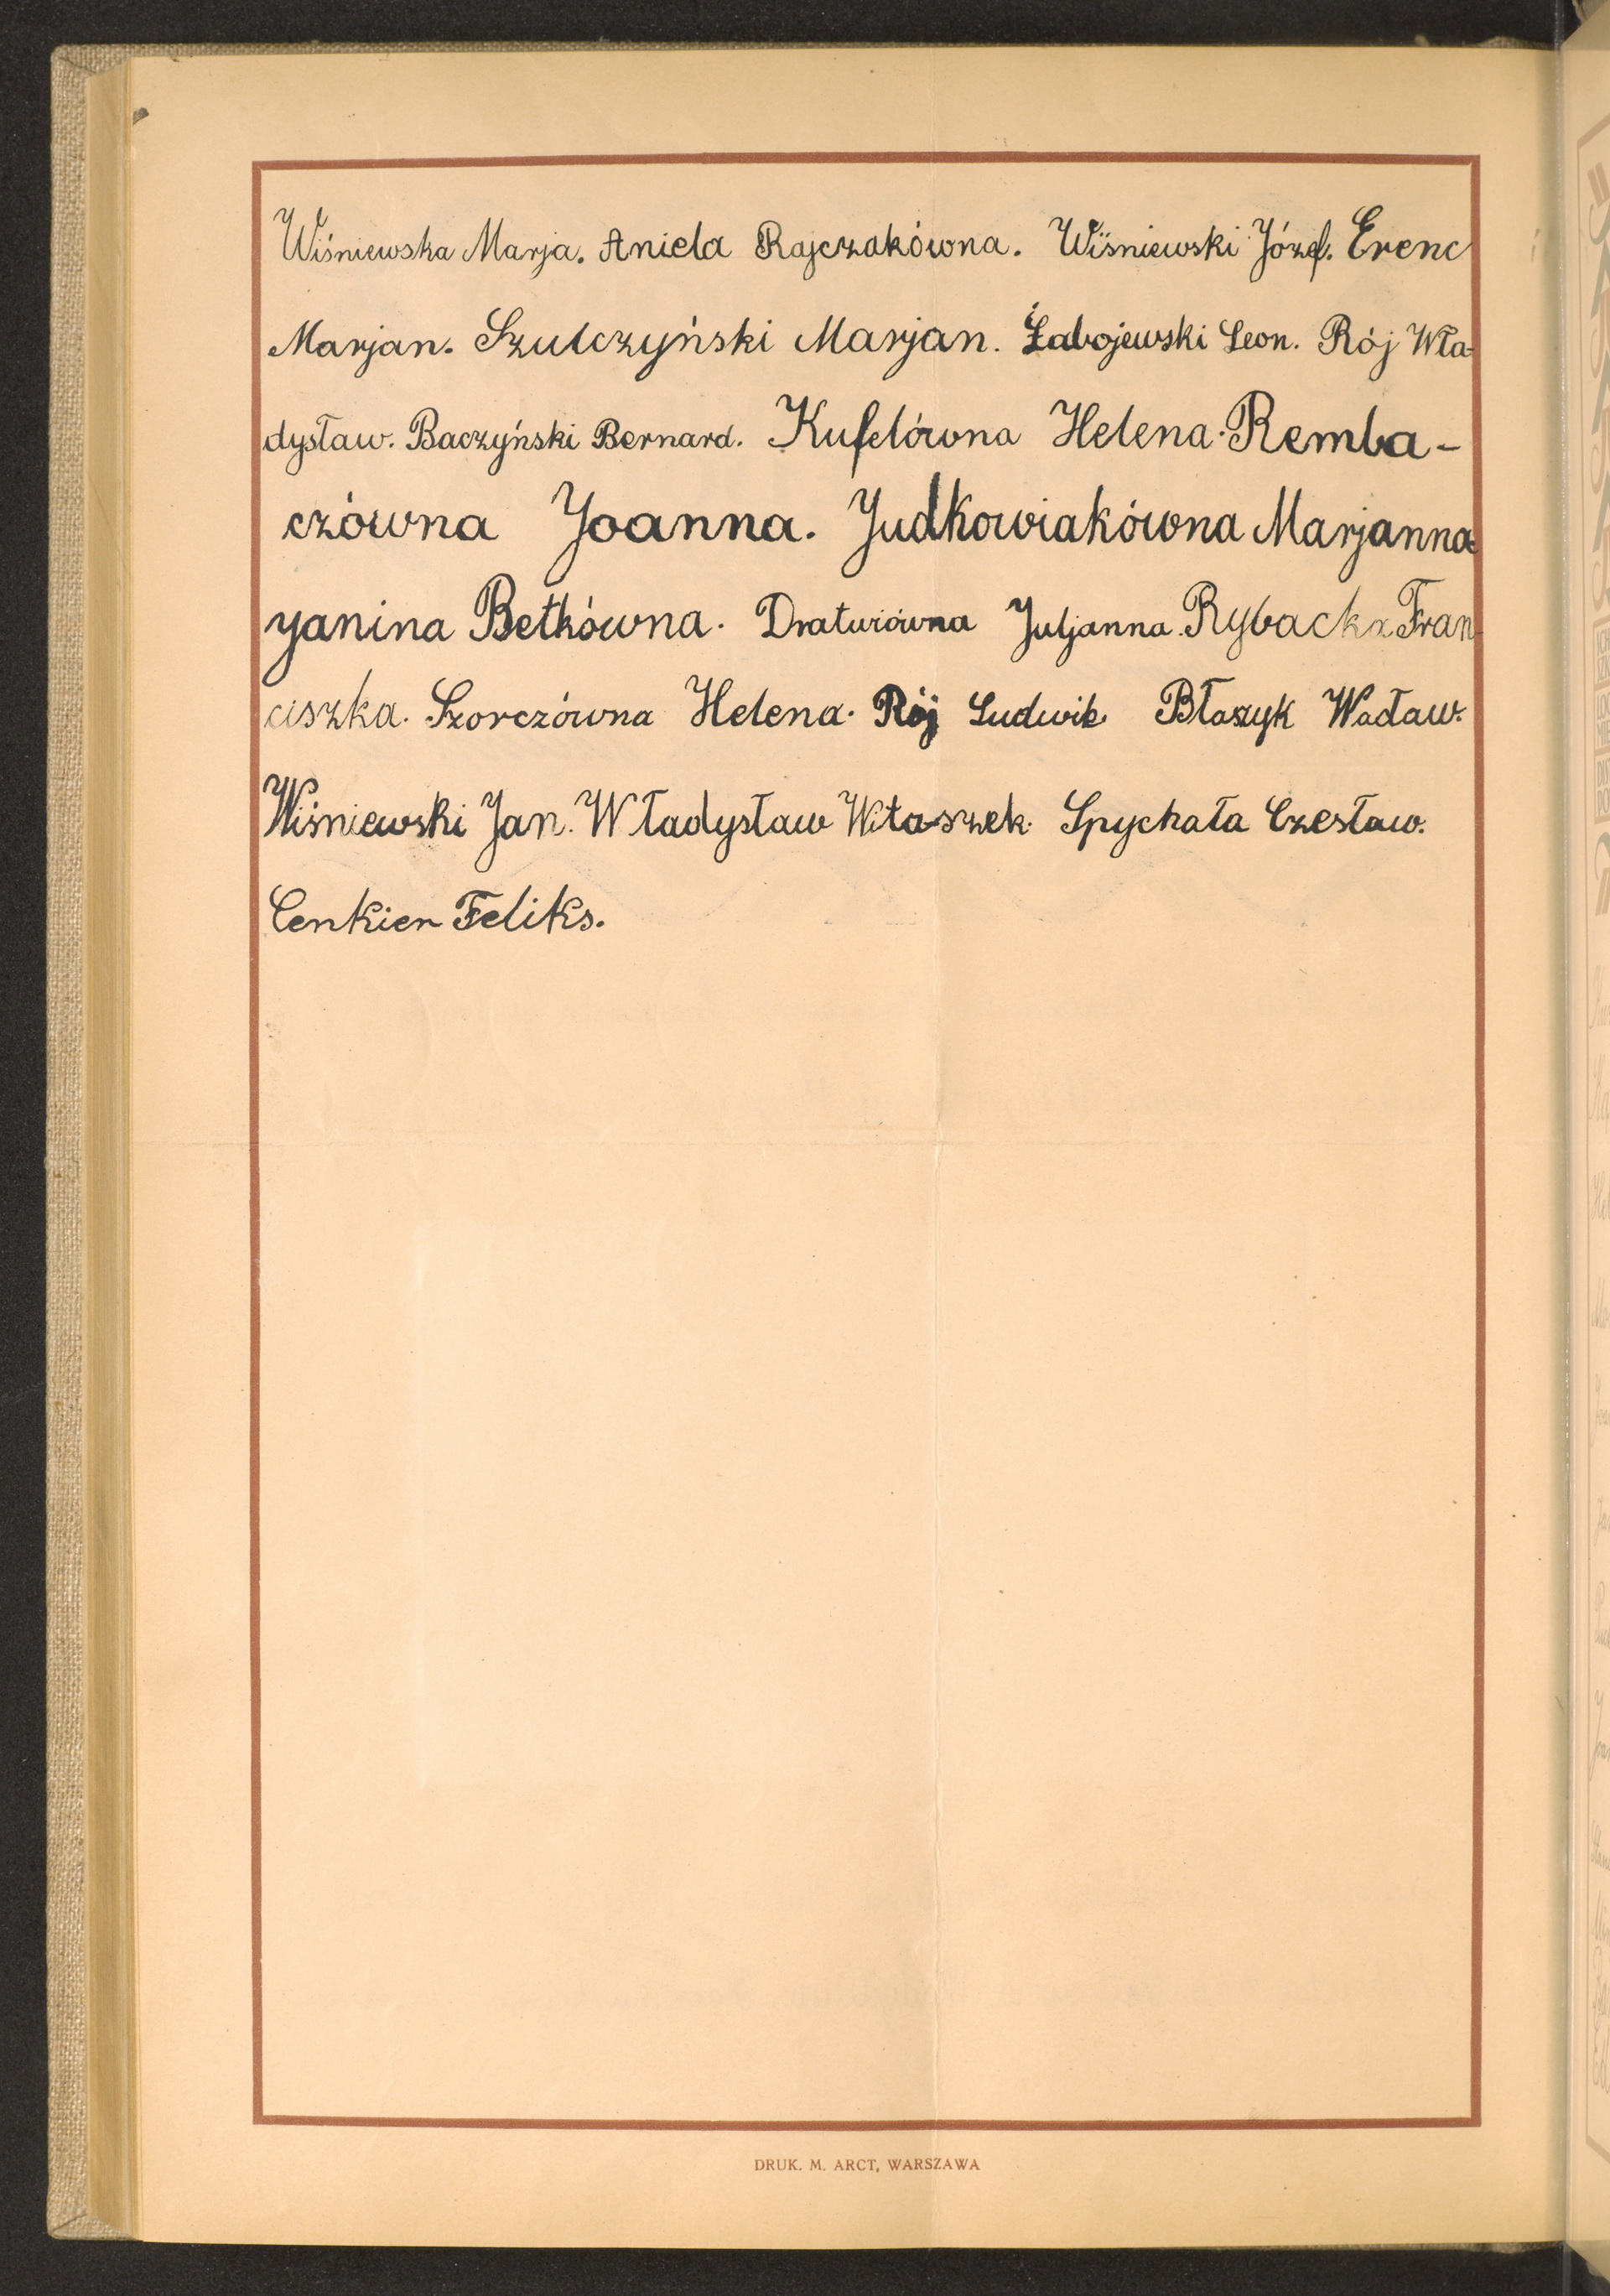 Wiśniewska Marja. Aniela Rajczakówna. Wiśniewski Józef. Erenc
Marjan. Szulczyński Marjan. Żabojewski Leon. Rój Wła-
dysław. Baczyński Bernard. Kufelówna Helena. Remba-
czówna Joanna. Judkowiakówna Marjanna
Janina Betkówna. Draturówna Juljanna. Rybacka Fran
ciszka. Szorczówna Helena. Rój Ludwik Błaszyk Wacław.
Wiśniewski Jan. Władysław Witaszek. Spychała Czesław.
Cenkier Feliks.
DRUK. M. ARCT, WARSZAWA